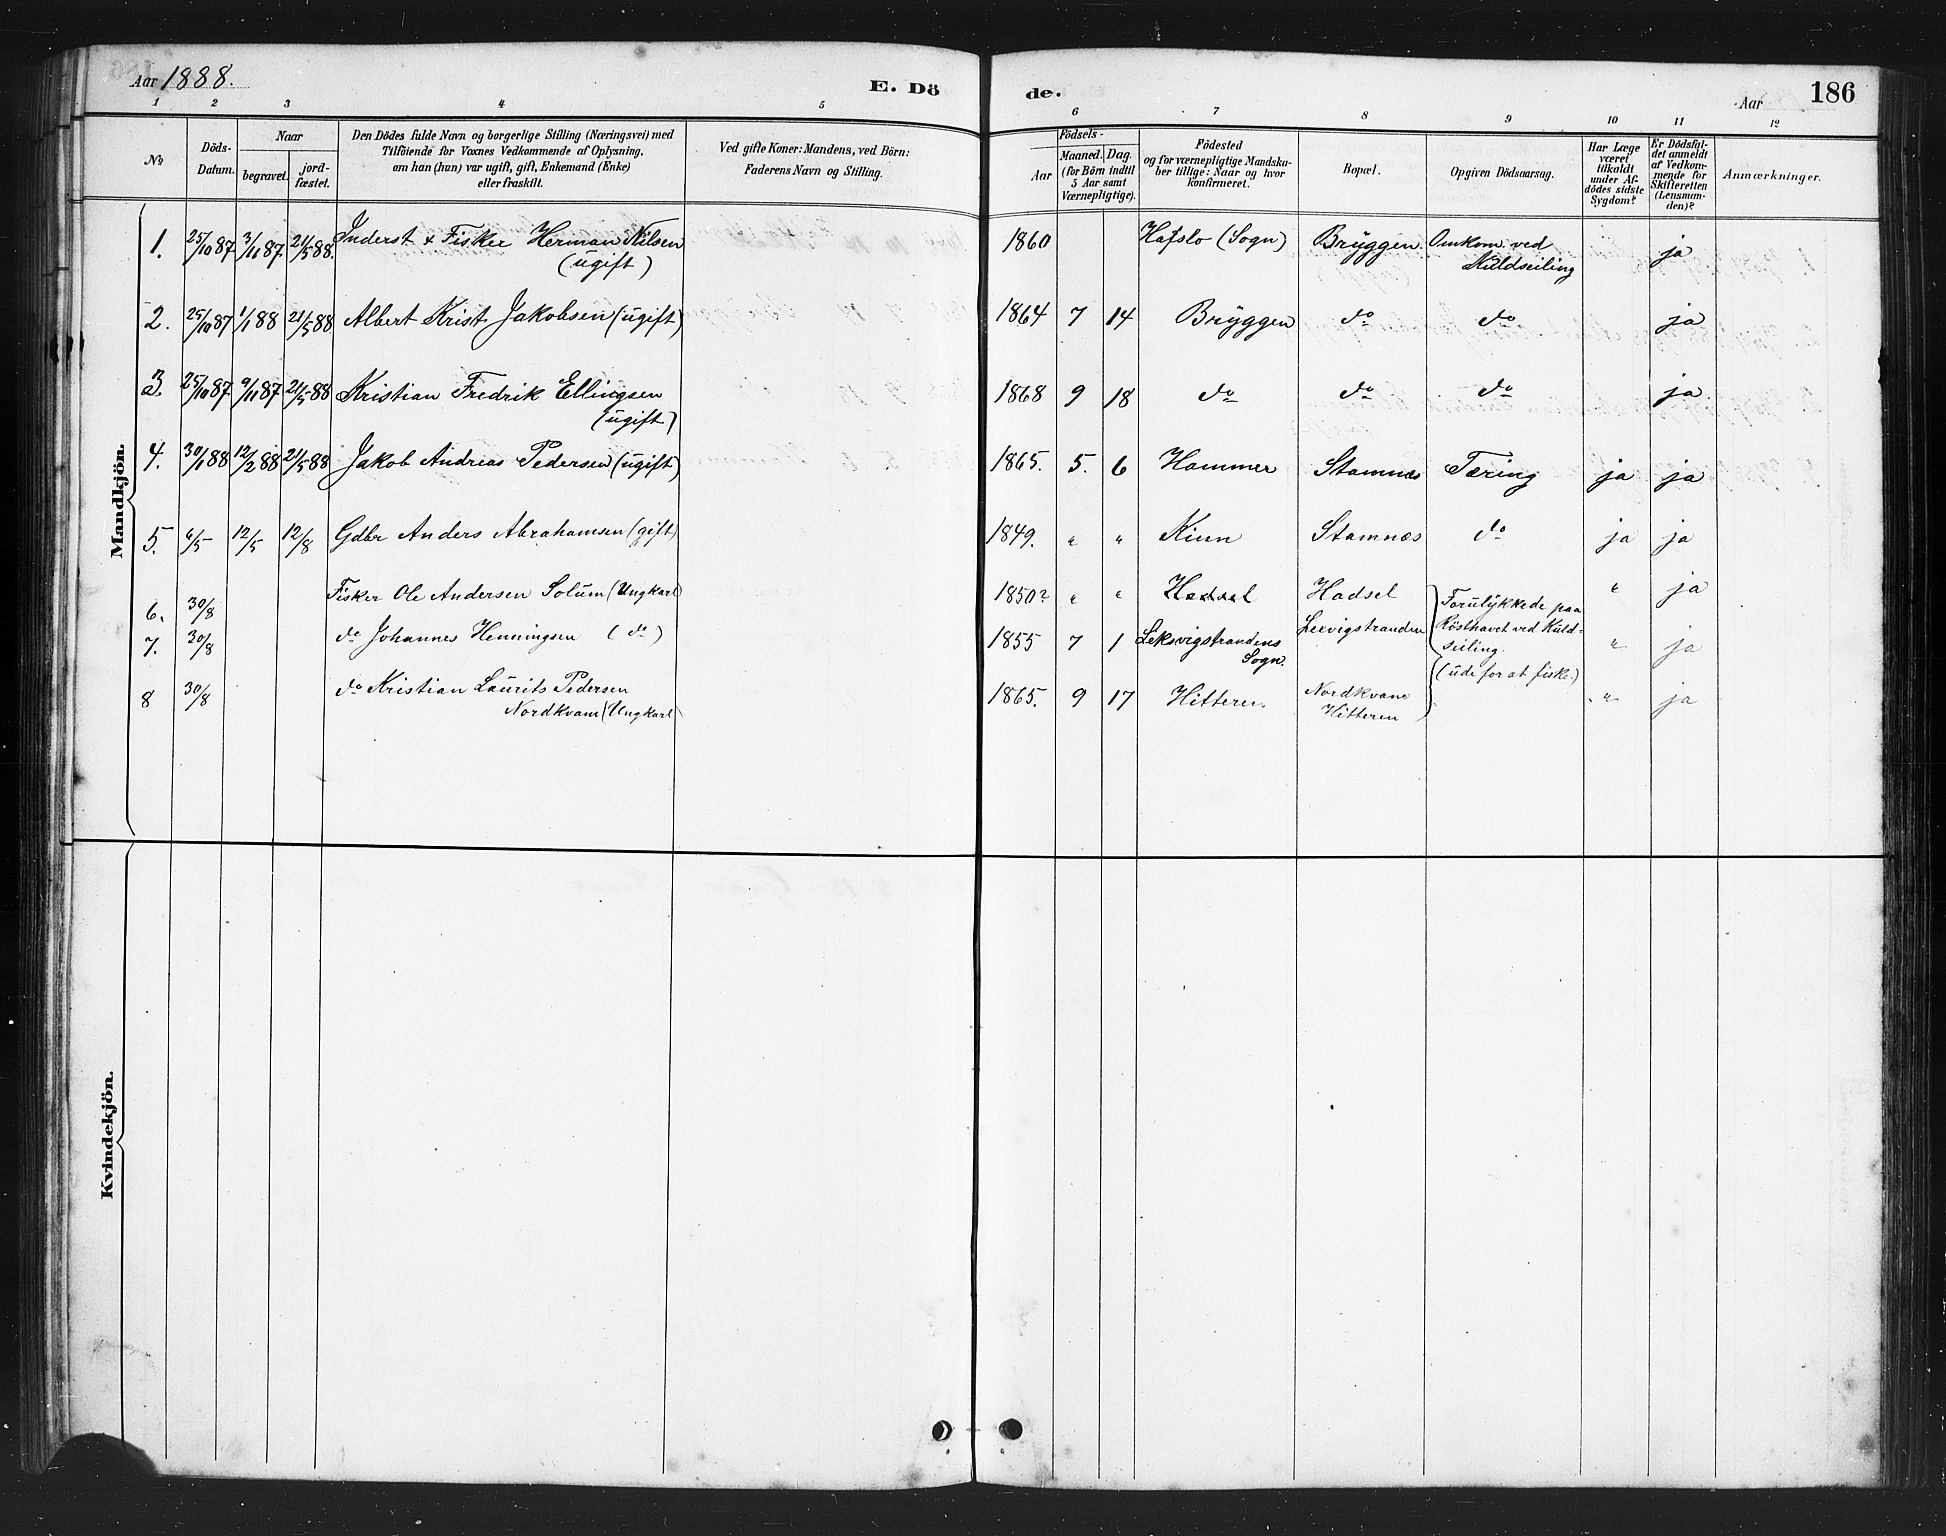 Aar 1888. E. Dö de. Aar 186
1 2 3 4 5 6 7 8 9 10 11 12
No Döds-Datum. Naar begravet. jord-fæstet. Den Dödes fulde Navn og borgerlige Stilling (Næringsvei) med Tilföiende for Voxnes Vedkommende af Oplysning, om han (hun) var ugift, gift, Enkemand (Enke) eller fraskilt. Ved gifte Koner: Mandens, ved Börn: Faderens Navn og Stilling. Födsels- Aar Maaned. Dag. (for Börn indtil 5 Aar samt Værnepligtige). Födested og for værnepligtige Mandskaber tillige: Naar og hvor konfirmeret. Bopæl. Opgiven Dödsaarsag. Har Læge været tilkaldt under Afdödes sidste Sygdom? Er Dödsfaldet anmeldt af Vedkommende for Skifteretten (Lensmanden)? Anmærkninger.
Mandkjön.
1. 25/10 87 3/11 87 21/5 88. Inderst & Fisker Herman Nilsen (ugift) 1860 Hafslo (Sogn) Brÿggen Omkom ved Kuldseiling ja
2. 25/10 87 1/1 88 21/5 88 Albert Krist. Jakobsen (ugift) 1864 7 14 Brÿggen do do ja
3. 25/10 87 9/11 87 21/5 88 Kristian Fredrik Ellingsen (ugift) 1868 9 18 do do do ja
4. 30/1 88 12/2 88 21/5 88 Jakob Andreas Pedersen (ugift) 1865. 5. 6 Hammer Stamnæs Tæring ja ja
5. 6/5 12/5 12/8 Gdbr Anders Abrahamsen (gift) 1849. " " Kinn Stamnæs do ja ja
6. 30/8 Fisker Ole Andersen Solum (Ungkarl) 1850? " " Hadsel Hadsel Forulykkede paa Rösthavet ved Kuldseiling. (ude for at fiske.) " ja
7. 30/8 do Johannes Henningsen (do) 1855 7 1 Leksvigstrandens Sogn. Lexvigstranden " ja
8 30/8 do Kristian Laurits Pedersen Nordkvam (Ungkarl) 1865. 9 17 Hitteren. Nordkvane Hitteren " ja
Kvindekjön.